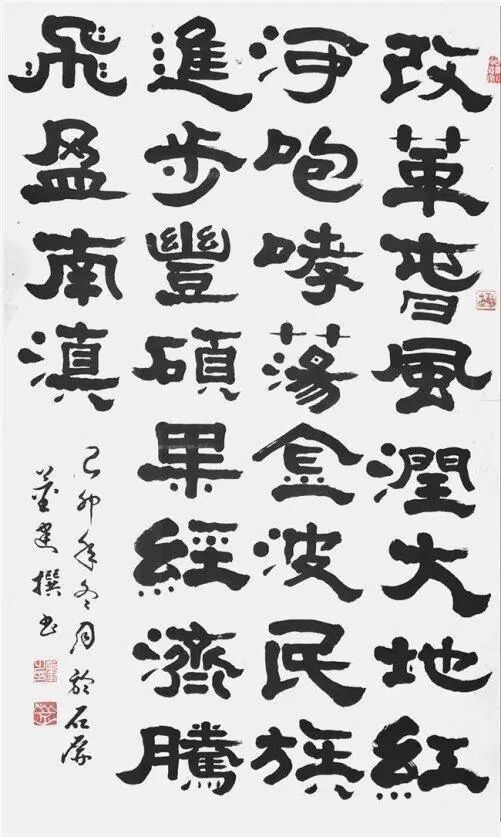 改革萅風潤大地紅
河咆哮蕩金波民族
進步豐碩果經濟騰
飛盈南滇
己卯年冬月於石屏
建撰书